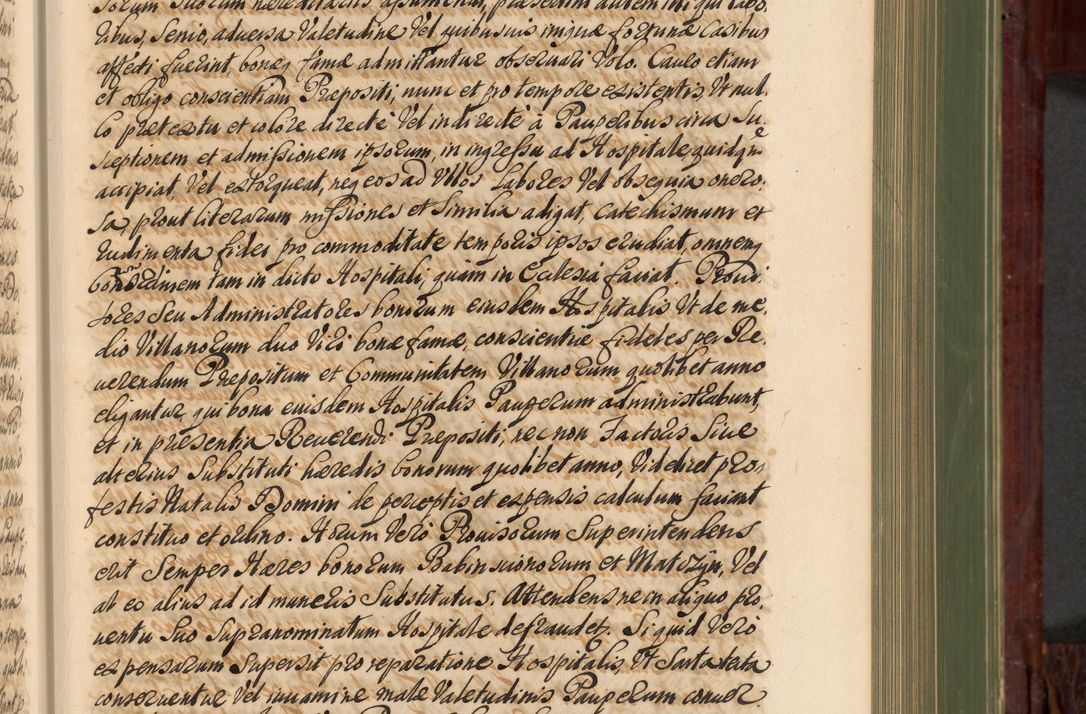 ribus, Senio, adversa Valetudine Vel quibusuis iniquæ fortunæ Casibus
affecti fuerint, bonæq famæ admittantur obseruari Volo. Caueo etiam
et obligo conscientiam Præpositi, nunc et pro tempore existentis, Vt nul,
lo pretextu et colore directe Vel indirecte à Pauperibus circa Su,
sceptionem et admissionem ipsorum, in ingressu ad Hospitale, quidq̃
accipiat, Vel extorqueat, neq eos ad Vllos Labores Vel obsequia onero,
sa, prout literarum missiones et Similia adigat, Catechismum et
rudimenta fidei pro commoditate temporis ipsos erudiat, omnemq
ordinem tam in dicto Hospitali, quàm in Ecclesia faciat. Proui,
sores Seu Administratores bonorum eiusdem Hospitalis Vt de me,
dio Villanorum duo Viri bonæ famæ, conscientiæ fideles per Re,
uerendum Præpositum et Communitatem Villanorum quolibet anno
eligantur, qui bona eiusdem Hospitalis Pauperum administrabunt,
et in præsentia Reuerendi Præpositi, nec non Factoris Siue
alterius Substituti hæredis bonorum quolibet anno, Videlicet pro,
festis Natalis Domini de perceptis et expensis calculum faciant
constituo et ordino. Horum Vero Prouisorum Superintendens
erit Semper Hæres bonorum Babinscionorum et Matczyn, Vel
ab eo alius ad id muneris Substitutus. Attendens ne in aliquo pro,
uentu Suo Supranominatum Hospitale defraudet. Siquid Vero
expensarum Supersit pro reparatione Hospitalis Vt Sarta tecta
conseruentur Vel iuuamine male Valetudinis Pauperum conuer,